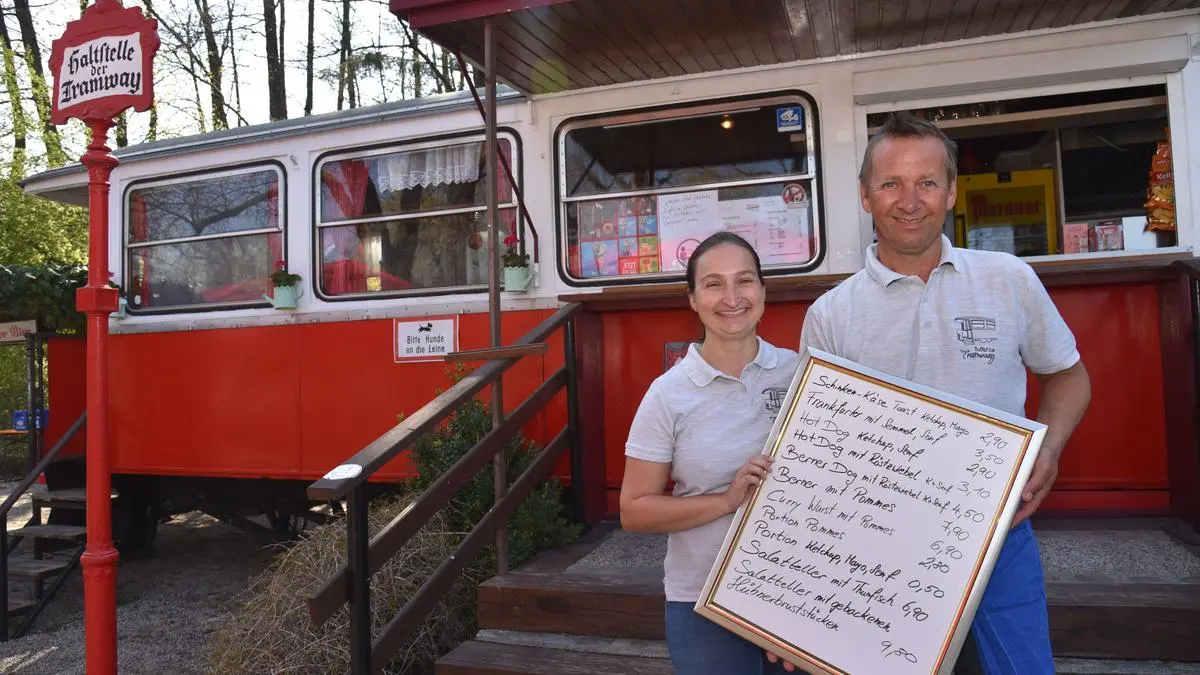 Haltstelle
der
Tramway
Bitte Hunde
an die Leine
JETZT
Tramway
Schinken-Käse Toast Ketchup, Mayo 2,90
Frankfurter mit Semmel, Senf 3,50
Hot Dog Ketchup, Senf 2,90
Hot Dog mit Röstzwiebel K+Senf 3,10
Berner Dog mit Röstzwiebel K+Senf 4,50
Berner mit Pommes 7,90
Curry Wurst mit Pommes 6,90
Portion Pommes 2,80
Portion Ketchup, Mayo, Senf 0,50
Salatteller mit Thunfisch 6,90
Salatteller mit gebackenen
Hühnerbruststücken 9,80